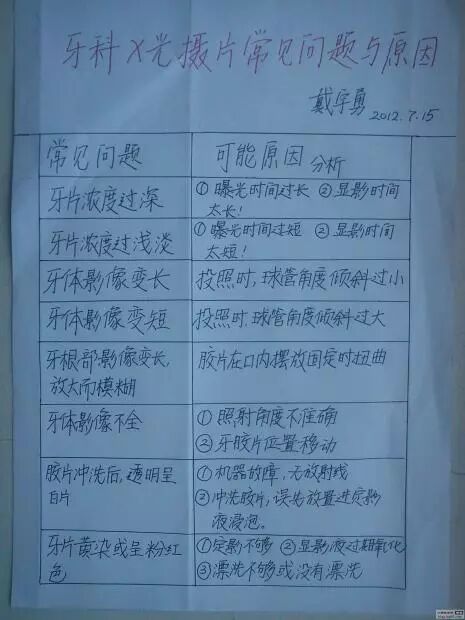 牙科X光摄片常见问题与原因
戴宇勇 2012.7.15
常见问题
可能原因分析
牙片浓度过深
① 曝光时间过长 ② 显影时间
太长!
牙片浓度过浅淡
① 曝光时间过短 ② 显影时间
太短!
牙体影像变长
投照时,球管角度倾斜过小
牙体影像变短
投照时,球管角度倾斜过大
牙根部影像变长,
放大而模糊
胶片在口内摆放固定时扭曲
牙体影像不全
① 照射角度不准确
② 牙胶片位置移动
胶片冲洗后,透明呈
白片
① 机器故障,无放射线
② 冲洗胶片,误先放置进定影
液浸泡。
牙片黄染或呈粉红
色
① 定影不够 ② 显影液过期氧化
③ 漂洗不够或没有漂洗